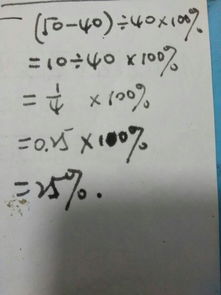 (50-40)÷40×100%
=10÷40×100%
=1/4 ×100%
=0.25×100%
=25%.